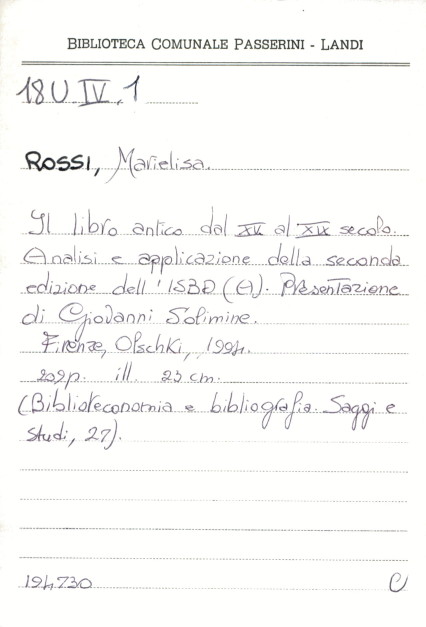 BIBLIOTECA COMUNALE PASSERINI - LANDI
18U IV.1
ROSSI, Marielisa.
Il libro antico dal XV al XIX secolo.
Analisi e applicazione della seconda
edizione dell'ISBD (A). Presentazione
di Giovanni Solimine.
Firenze, Olschki, 1994.
209p. ill. 23 cm.
(Biblioteconomia e bibliografia. Saggi e
studi, 27).
194730 C